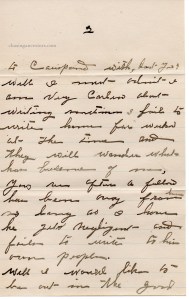 2
to Correspond with, but Joe
well I must admit I
am very Careless about
writing sometimes I fail to
write home for weeks
at the time and
they will wonder what
has become of me,
You see after a fellow
has been away from
so long as I have
he gets negligent and
failes to write to his
own people.
Well I would like to
be out on the good